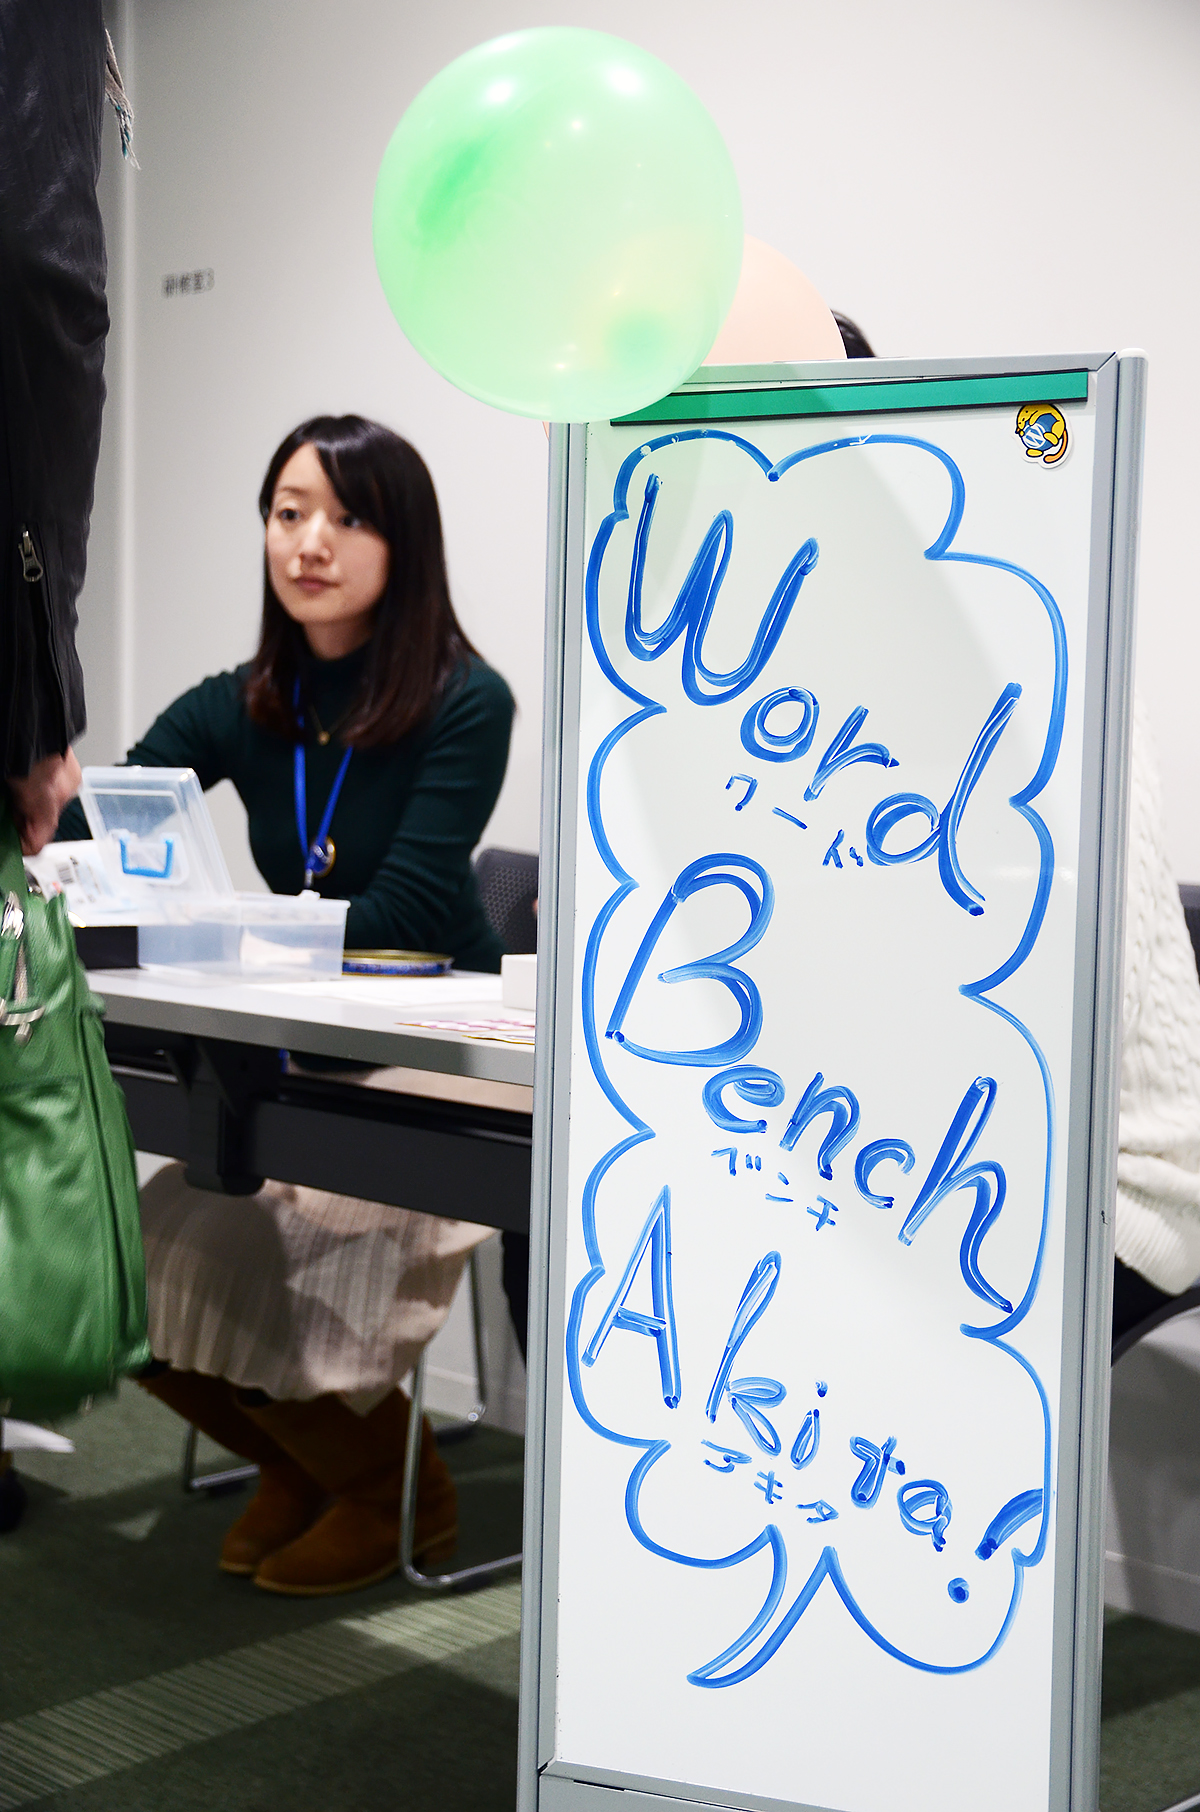 研修室3
Word
ワード
Bench
ベンチ
Akita!
アキタ